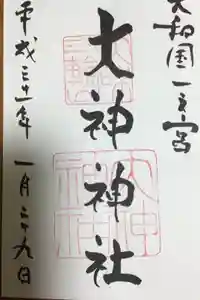 大和国一之宮
三輪
大神神社
大神神社
平成三十一年 一月二十九日